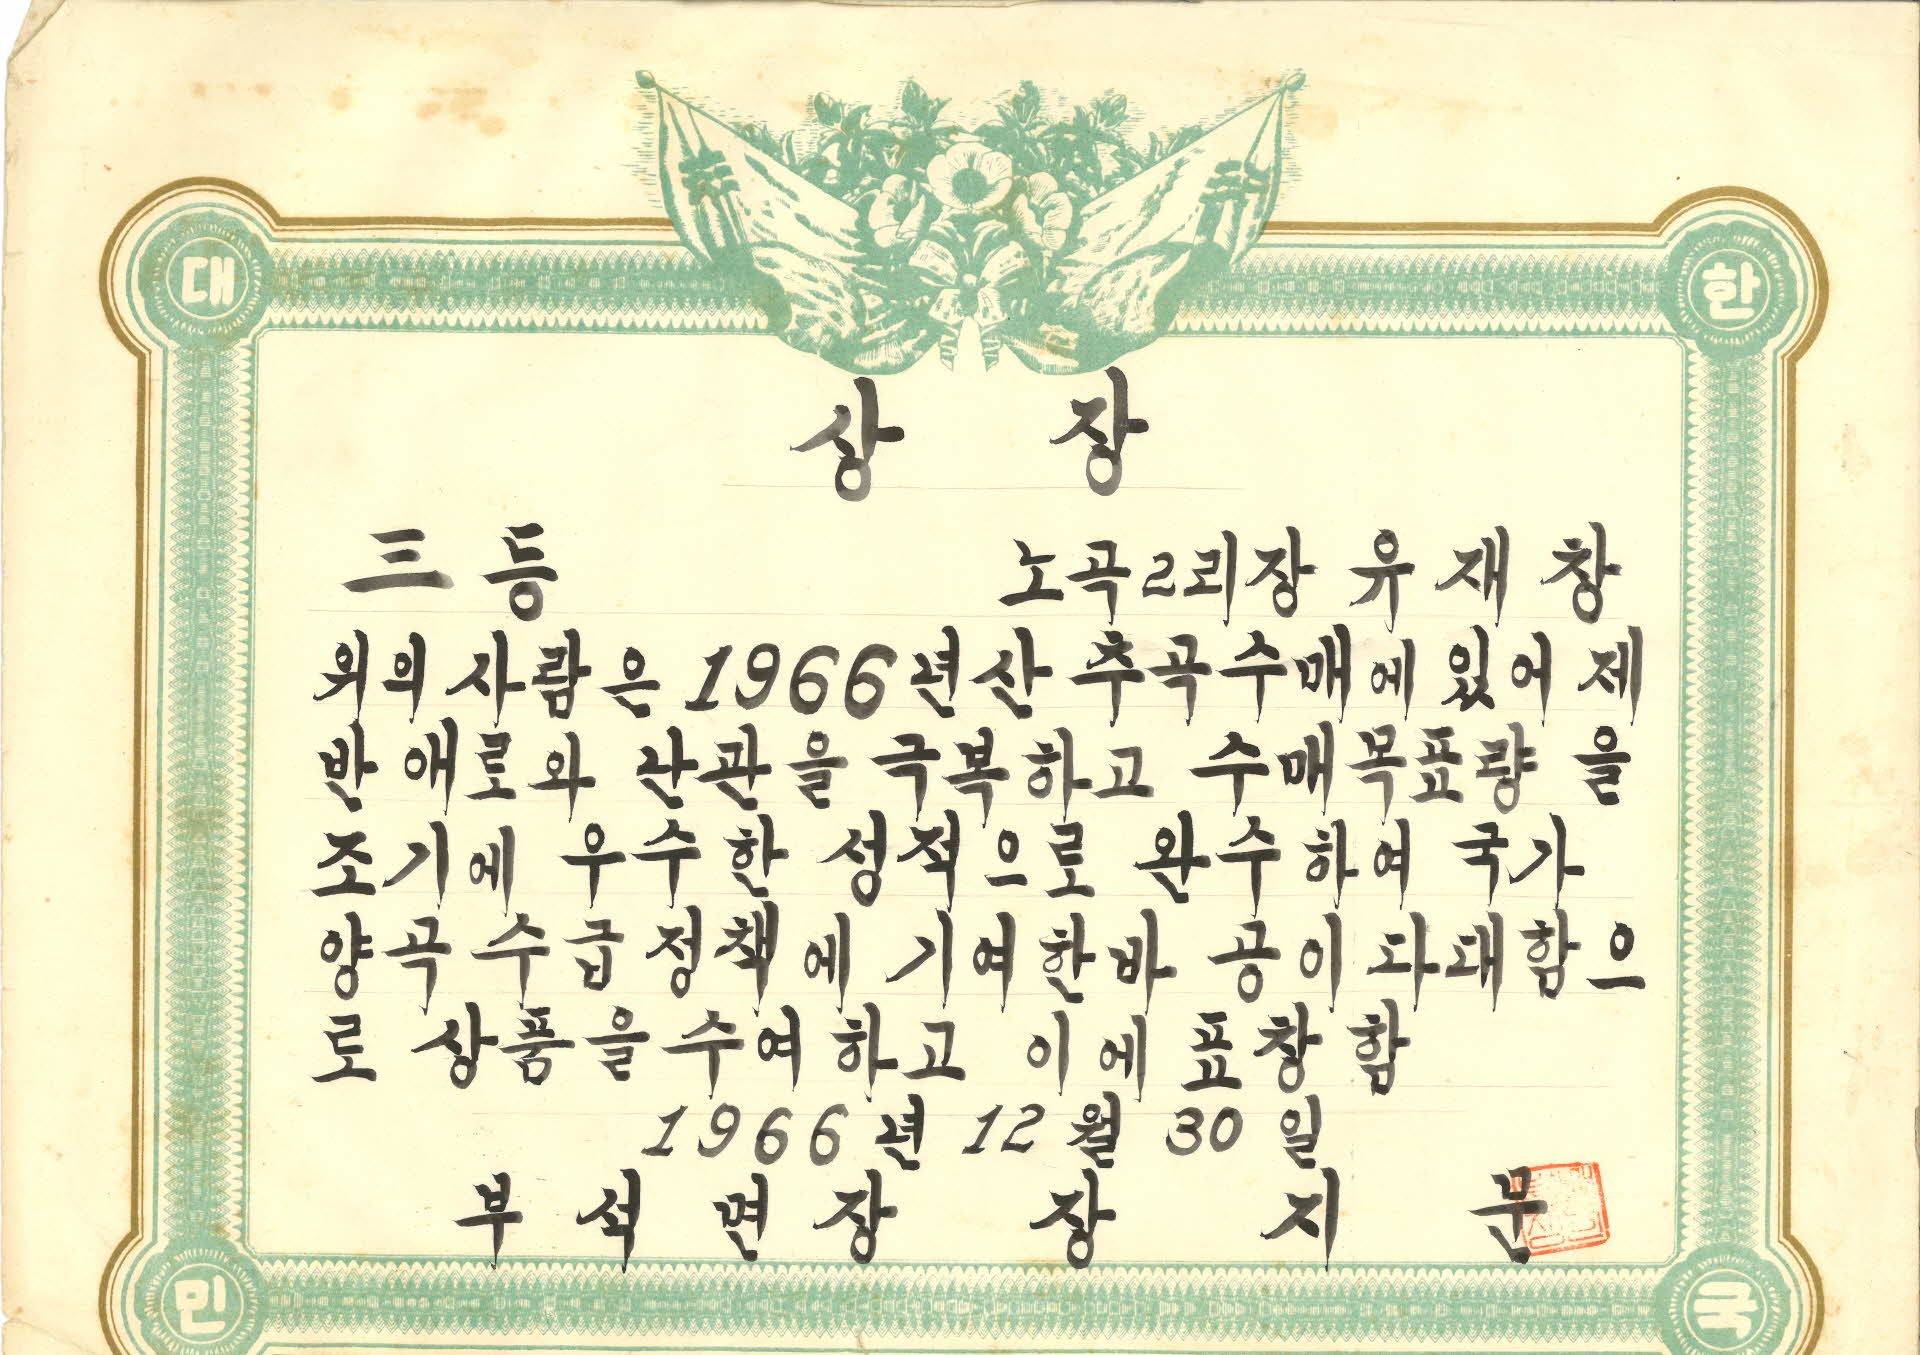 대 한
상 장
三등 노곡2리장 유재창
위의 사람은 1966년산 추곡수매에 있어 제
반 애로와 난관을 극복하고 수매목표량을
조기에 우수한 성적으로 완수하여 국가
양곡 수급 정책에 기여한바 공이 다대함으
로 상품을 수여하고 이에 표창함
1966년 12월 30일
부석면장 장지문
민 국